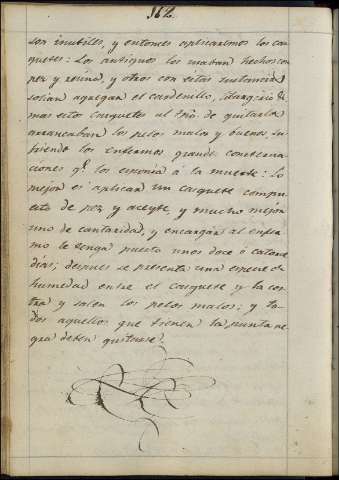 162.
son inutiles, y entonces aplicaremos los cas
quetes: Los antiguos los usaban hechos con
pez y resina, y otros con estas sustancias
solian agregar el cardenillo, litargirio &.
mas estos casquetes al tpo. de quitarlos
arrancaban los pelos malos y buenos, su
friendo los enfermos grandes consterna
ciones qe. los esponia á la muerte: Lo
mejor es aplicar un casquete compu
esto de pez y aceyte, y mucho mejor
uno de cantarida, y encargar al enfer
mo le tenga puesto unos doce ó catorce
dias; despues se presenta una especie de
humedad entre el casquete y la cos
tra y salen los pelos malos; y to
dos aquellos que tienen la punta ne
gra deben quitarse.